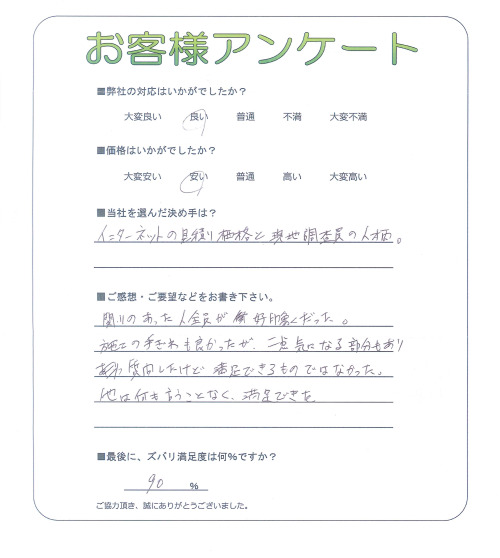 お客様アンケート
■弊社の対応はいかがでしたか？
大変良い 良い 普通 不満 大変不満
■価格はいかがでしたか？
大変安い 安い 普通 高い 大変高い
■当社を選んだ決め手は？
インターネットの見積り価格と現地調査員の人柄。
■ご感想・ご要望などをお書き下さい。
関りのあった人全員が好印象だった。
施工の手ぎわも良かったが、二点気になる部分もあり
質問したけど満足できるものではなかった。
他は何も言うことなく、満足できた
■最後に、ズバリ満足度は何％ですか？
90 ％
ご協力頂き、誠にありがとうございました。